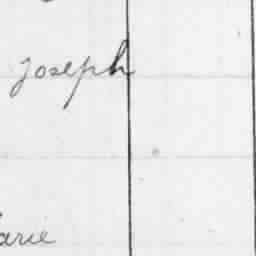 Joseph
arie